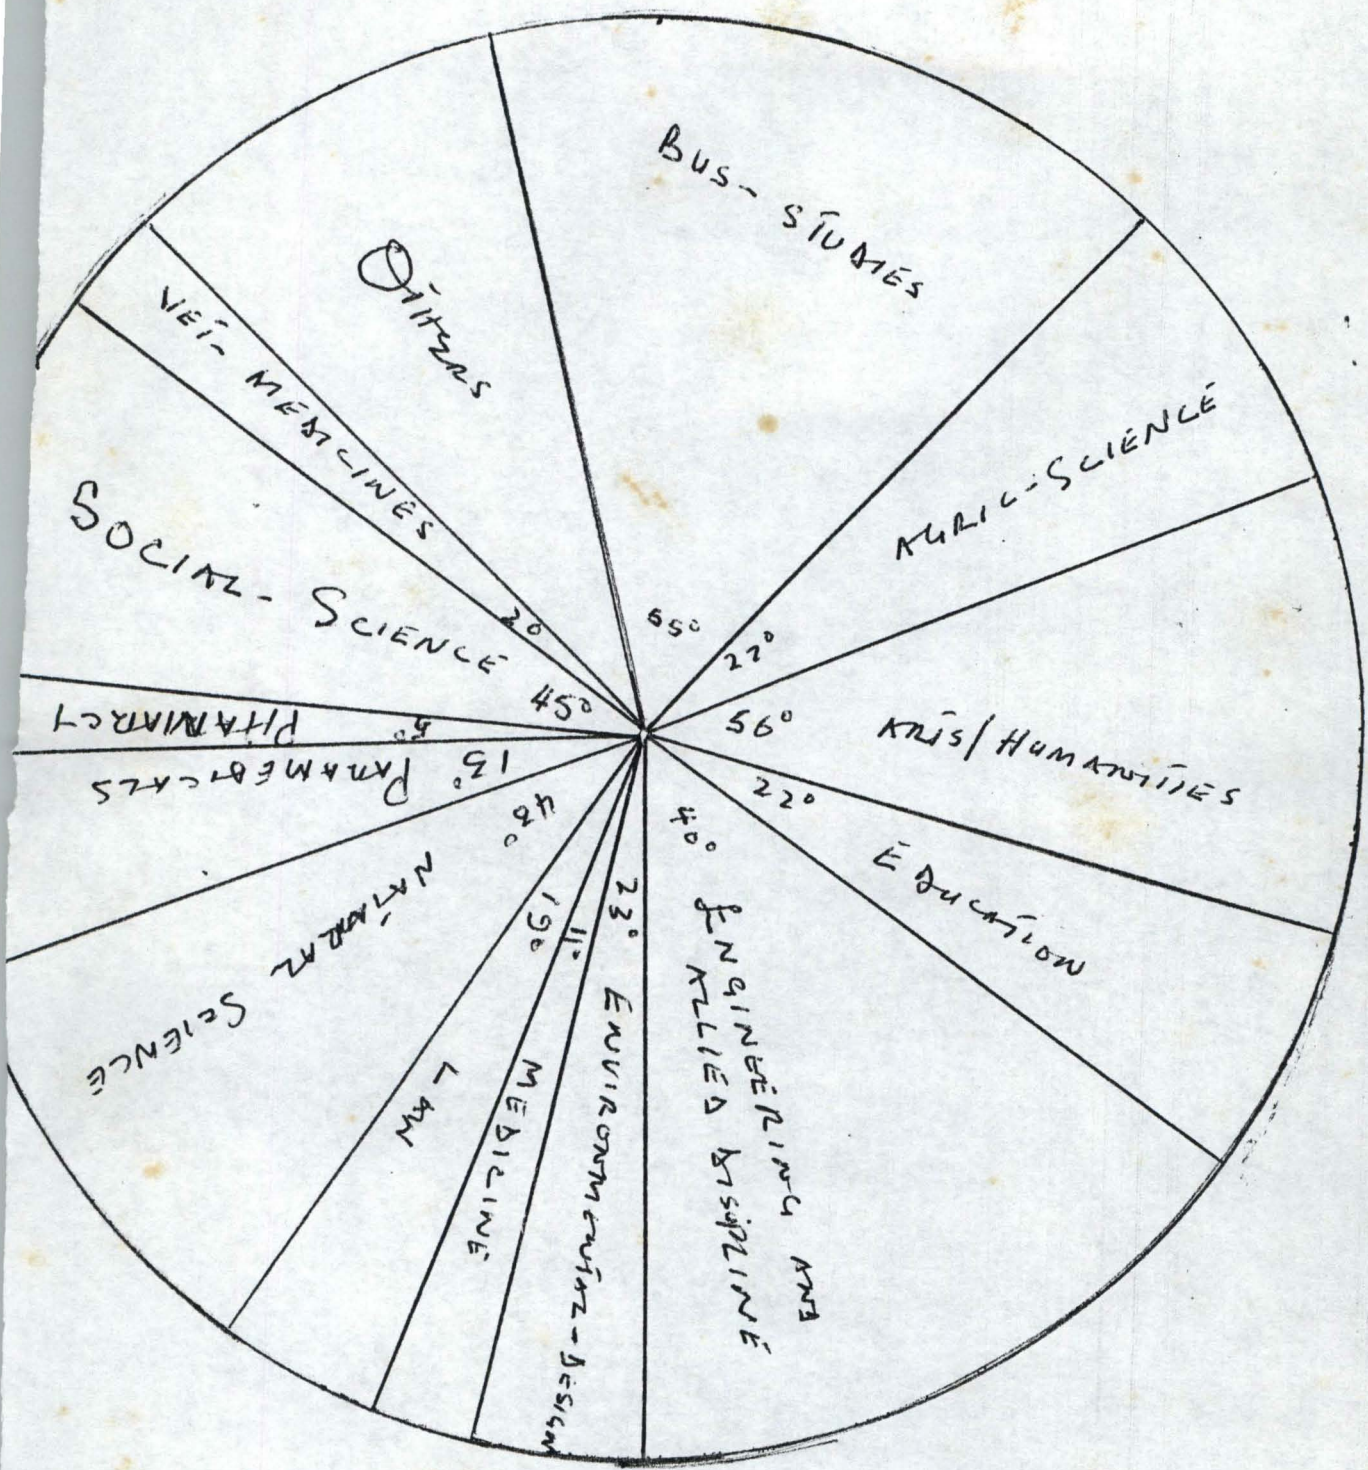 BUS- STUDIES
55°
AGRIC-SCIENCE
22°
ARTS/HUMANITIES
56°
EDUCATION
22°
ENGINEERING AND
ALLIED DISCIPLINE
40°
ENVIRONMENTAL-DESIGN
23°
MEDICINE
11°
LAW
19°
NATURAL SCIENCE
PARAMEDICALS
13°
PHARMARCY
5°
SOCIAL-SCIENCE
45°
VET- MEDICINES
2°
OTHERS